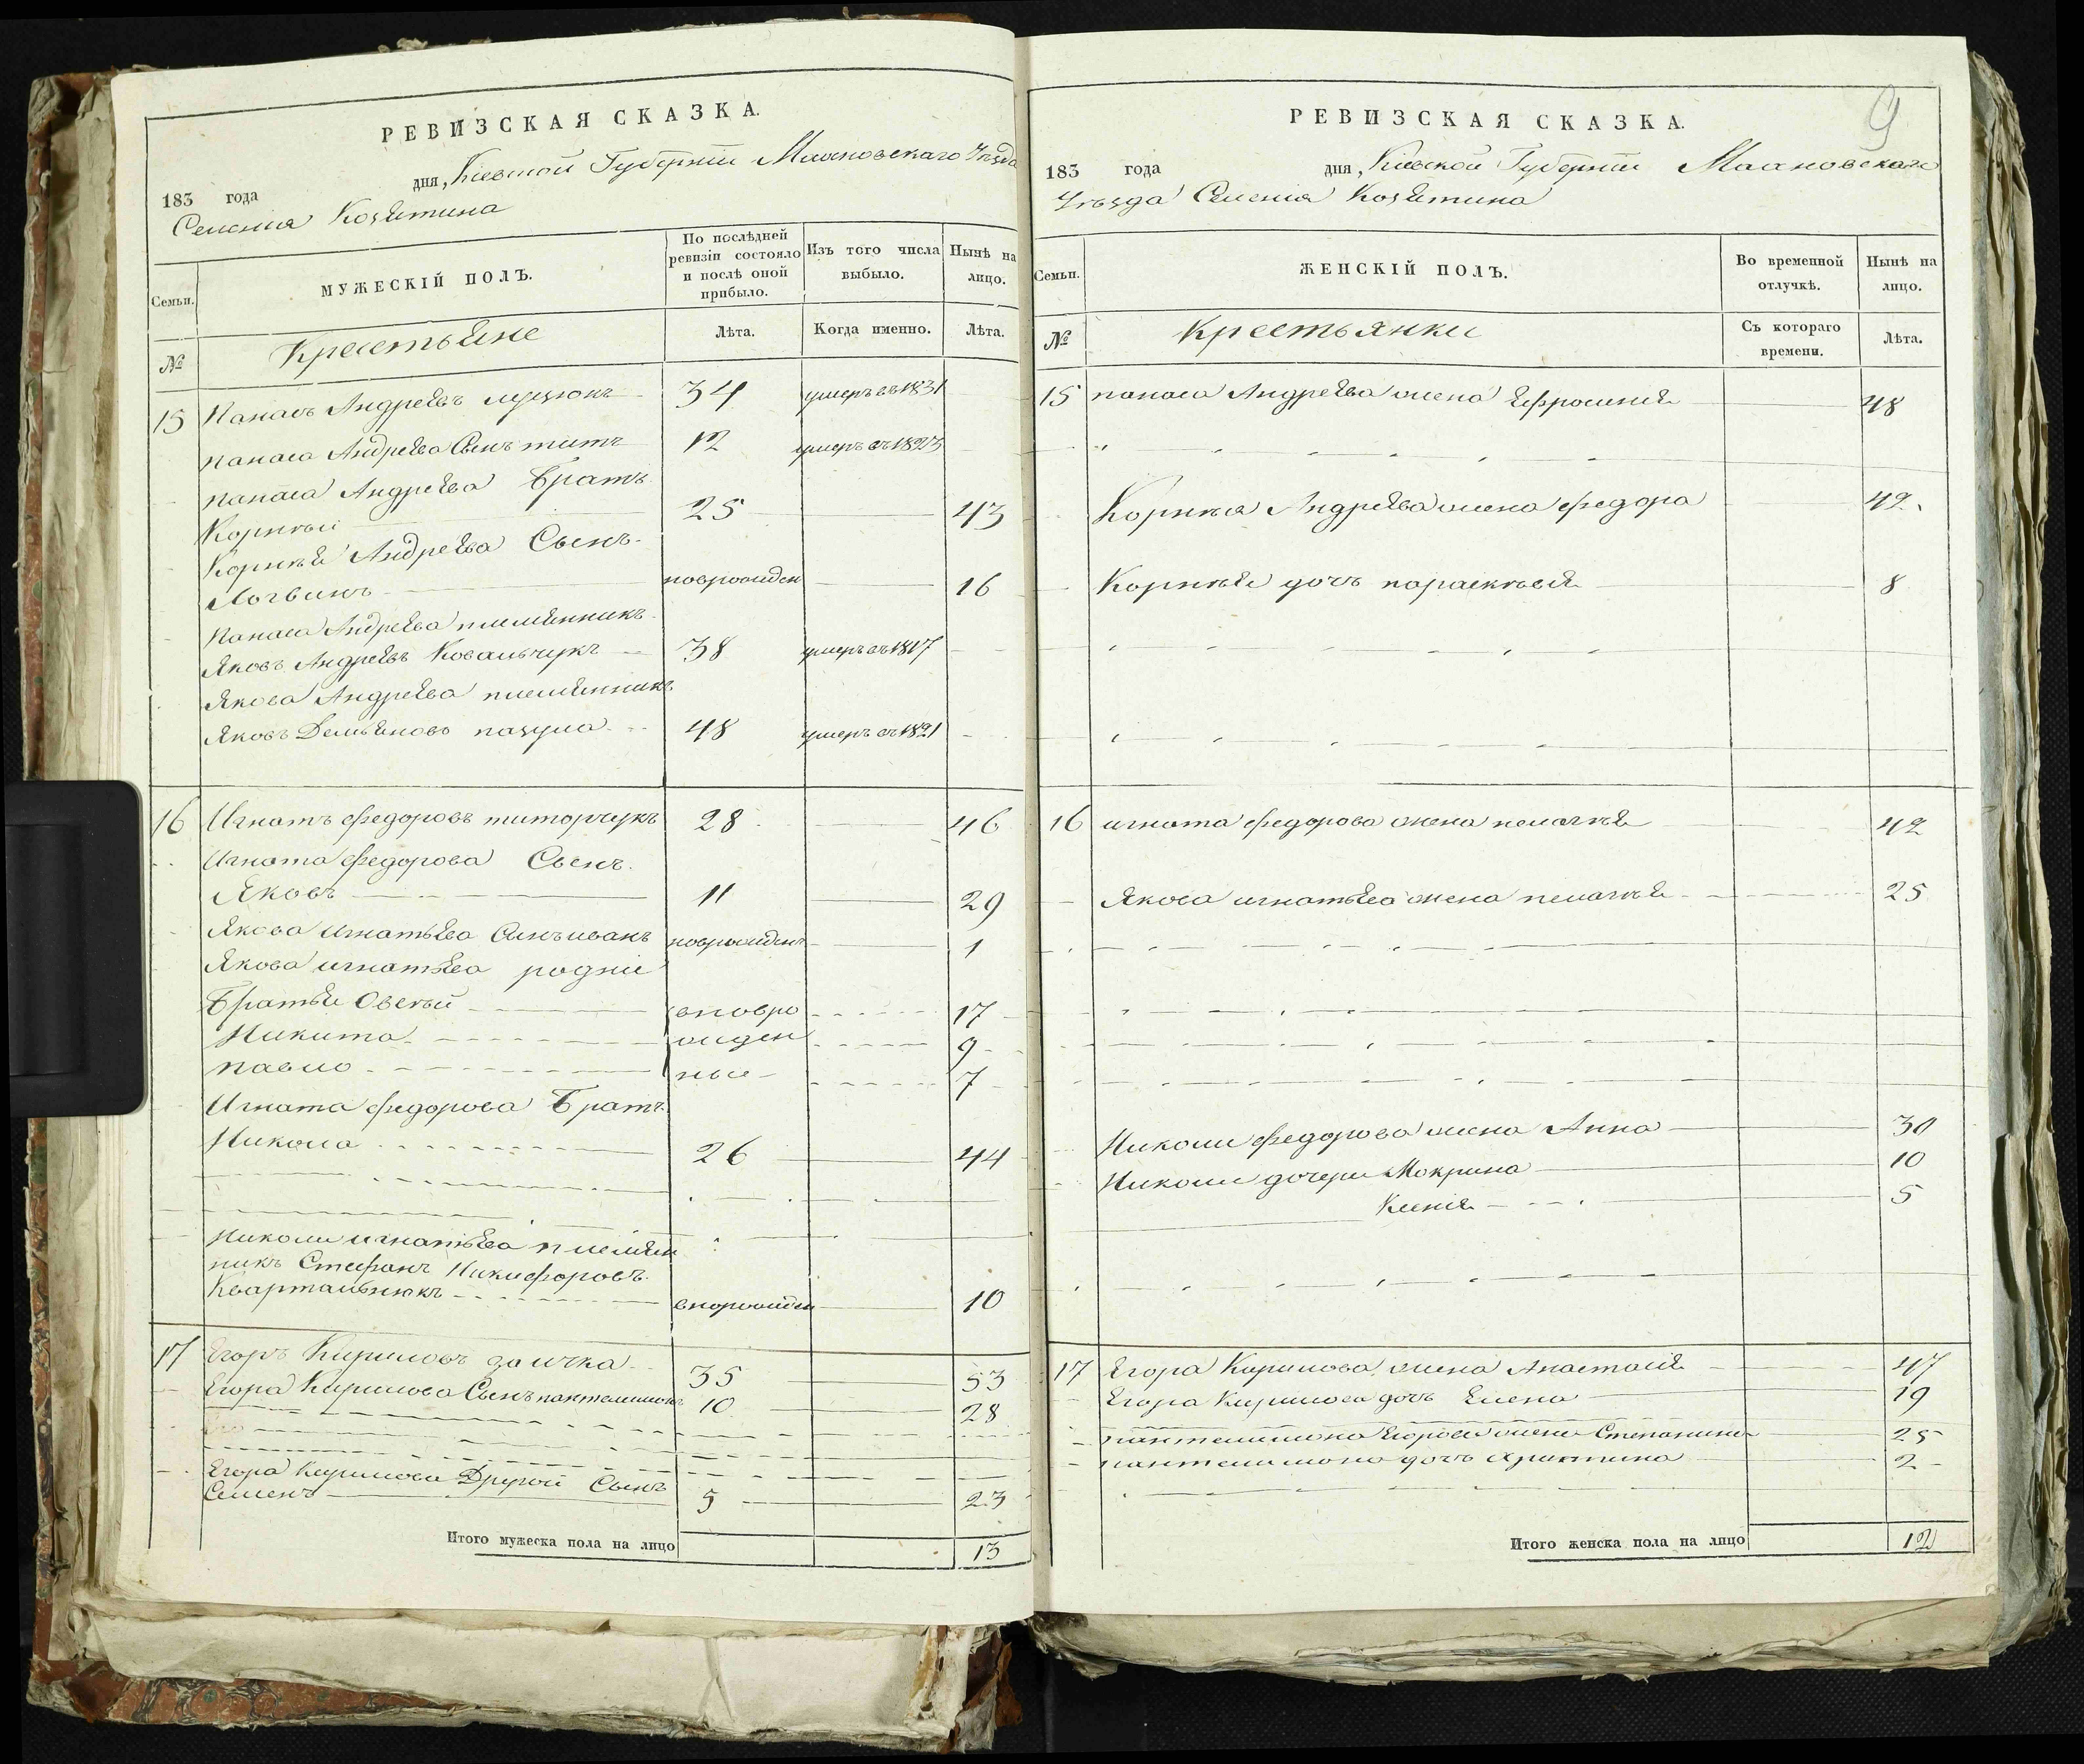 РЕВИЗСКАЯ СКАЗКА.
183 года дня, Кіевской Губерніи Махновскаго Уезда
Селенія Козятина
Семьи. МУЖЕСКІЙ ПОЛЪ. По послѣдней ревизіи состояло и послѣ оной прибыло. Изъ того числа выбыло. Нынѣ на лицо.
№ Крестьяне Лѣта. Когда именно. Лѣта.
15 Панасъ Андреевъ 34 умеръ въ 1831
панаса Андреева Сынъ титъ 12 умеръ въ 1823
панаса Андреева Братъ
Корней 25 43
Корнея Андреева Сынъ
Логвинъ новорожден 16
Панаса Андреева племянникъ
Яковъ Андреевъ Ковальчукъ 38 умеръ въ 1817
Якова Андреева племянникъ
Яковъ Демьяновъ 48 умеръ въ 1821
16 Игнатъ федоровъ титорчукъ 28 46
Игната федорова Сынъ
Яковъ 11 29
Якова игнатьева Сынъ иванъ новрожденъ 1
Якова игнатьева родніе
Братья Овсей вновро 17
Никита жден 9
павло ные 7
Игната федорова Братъ
Никола 26 44
Николы игнатьева племян
никъ Стефанъ Никифоровъ
Квартальнюкъ 10
17 Егоръ Кириловъ заичка 35 53
Егора Кирилова Сынъ пантелимонъ 10 28
Егора Кирилова Другой Сынъ
Семенъ 5 23
Итого мужеска пола на лицо 13
9
РЕВИЗСКАЯ СКАЗКА.
183 года дня, Кіевской Губерніи Махновскаго
Уезда Селенія Козятина
Семьи. ЖЕНСКІЙ ПОЛЪ. Во временной отлучкѣ. Нынѣ на лицо.
№ Крестьянки Съ котораго времени. Лѣта.
15 панаса Андреева жена Ефросинія 48
Корнея Андреева жена федора 42
Корнея дочъ параскевія 8
16 игната федорова жена пелагея 42
Якова игнатьева жена пелагея 25
Николы федорова жена Анна 30
Николы дочери Мокрина 10
Ксенія 5
17 Егора Кирилова жена Анастасія 47
Егора Кирилова дочъ Елена 19
пантелимона Егорова жена Степанида 25
пантелимона дочъ Христина 2
Итого женска пола на лицо 12